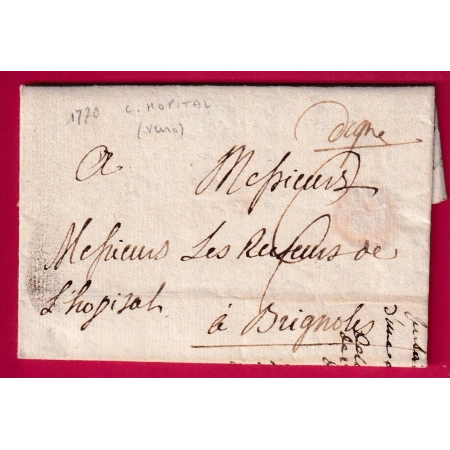 1770 C. HOPITAL
(verso)
digne
A Messieurs
Messieurs Les Recteurs de
L'hopital
à Brignoles